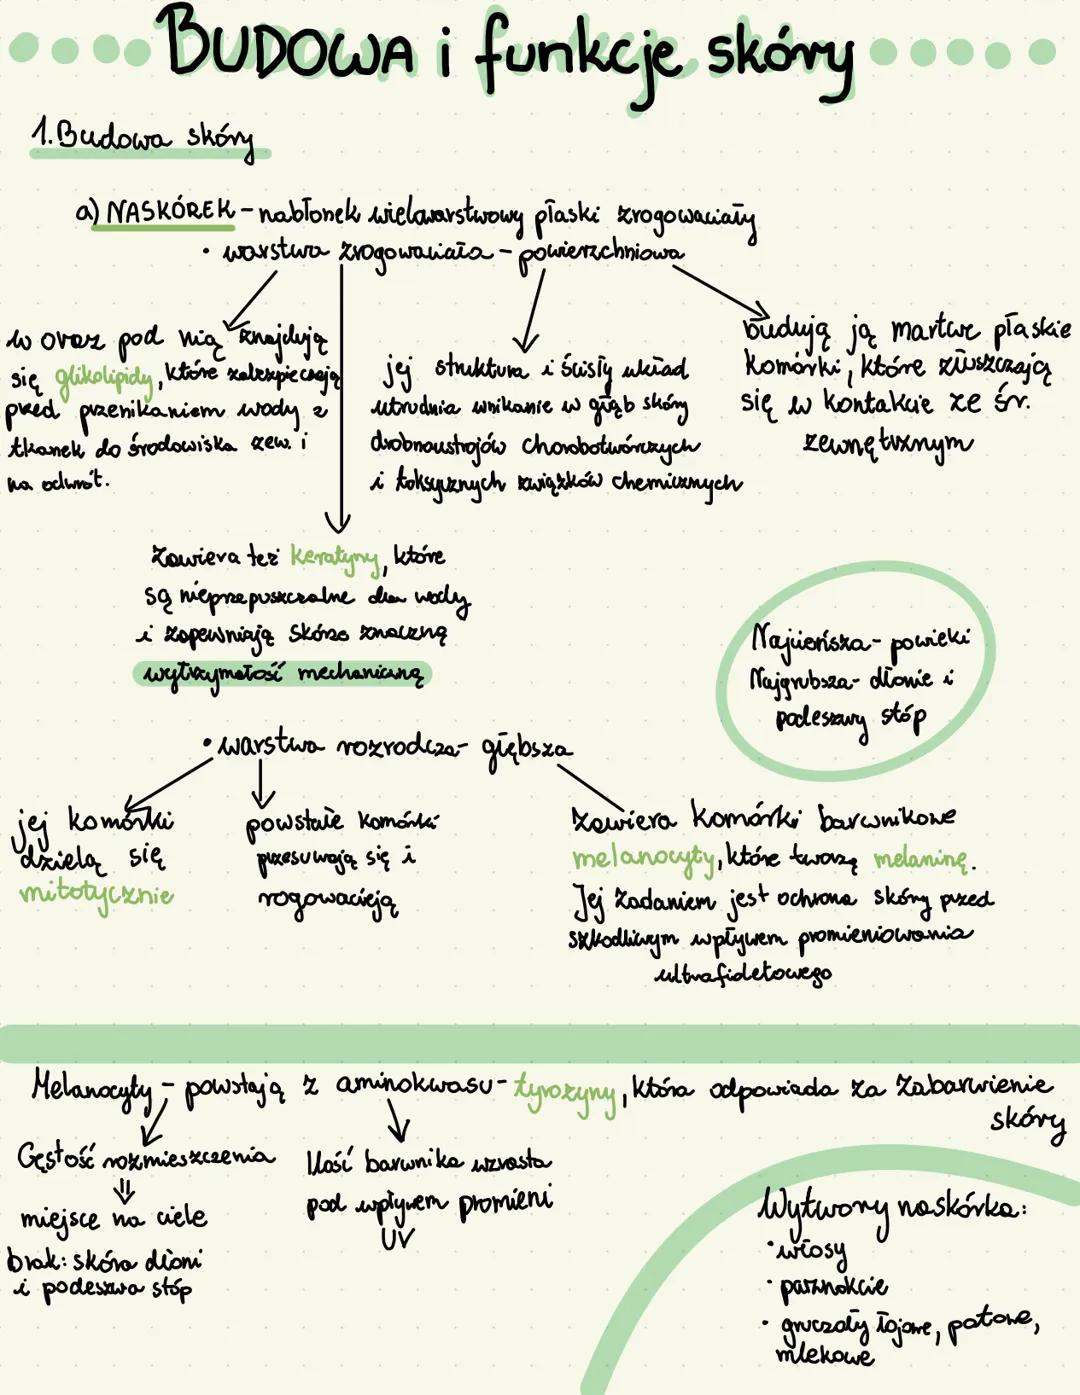 BUDOWA i funkcje skóry
1. Budowa skóry
a) NASKÓREK - nabłonek wielowarstwowy płaski zrogowaciały
• warstwa zrogowaciała - powierzchniowa
w oraz pod nią znajdują
się glikolipidy, które zabezpieczają
przed przenikaniem wody z
tkanek do środowiska zew. i
na odwrót.
jej struktura i ścisły układ
utrudnia wnikanie w głąb skóry
drobnoustrojów chorobotwórczych
i toksycznych związków chemicznych
budują ją martwe płaskie
komórki, które złuszczają
się w kontakcie ze śr.
zewnętrznym
Zawiera też keratyny, które
są nieprzepuszczalne dla wody
i zapewniają skórze znaczną
wytrzymałość mechaniczną
Najcieńsza - powieki
Najgrubsza - dłonie i
podeszwy stóp
• warstwa rozrodcza - głębsza
jej komórki
dzielą się
mitotycznie
powstałe komórki
przesuwają się i
rogowacieją
zawiera komórki barwnikowe
melanocyty, które tworzą melaninę.
Jej zadaniem jest ochrona skóry przed
szkodliwym wpływem promieniowania
ultrafioletowego
Melanocyty - powstają z aminokwasu - tyrozyny, która odpowiada za zabarwienie
skóry
Gęstość rozmieszczenia
miejsce na ciele
brak: skóra dłoni
i podeszwa stóp
Ilość barwnika wzrasta
pod wpływem promieni
UV
Wytwory naskórka:
• włosy
• paznokcie
• gruczoły łojowe, potowe,
mlekowe